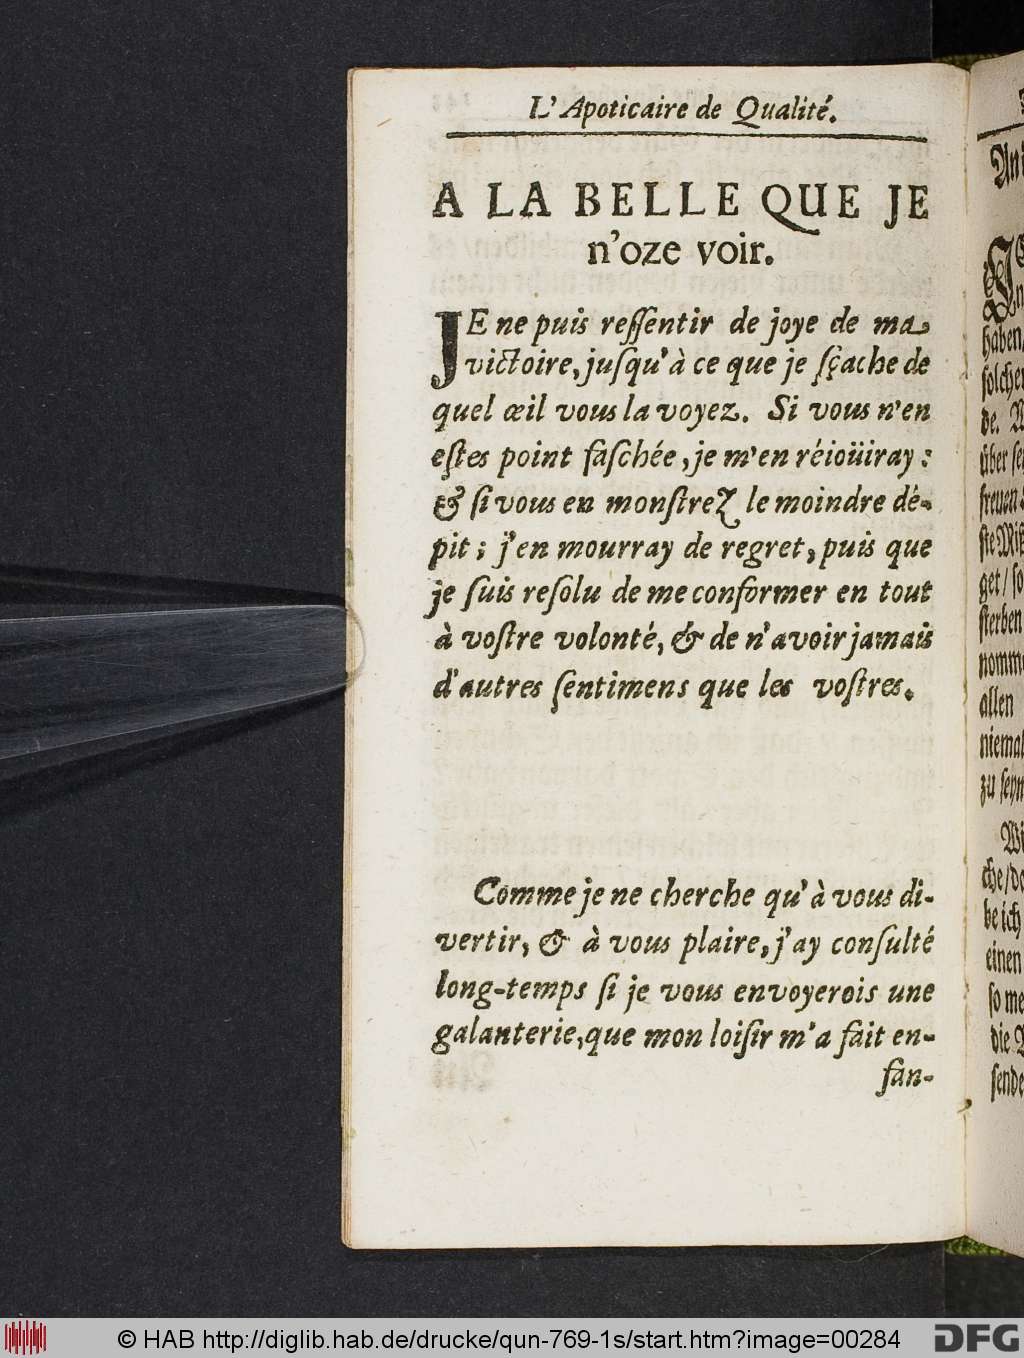 L'Apoticaire de Qualité.
A LA BELLE QUE JE
n'oze voir.
JE ne puis reſſentir de joye de ma
victoire, juſqu'à ce que je ſçache de
quel œil vous la voyez. Si vous n'en
eſtes point faſchée, je m'en réioüiray:
& ſi vous en monſtrez le moindre dé-
pit; j'en mourray de regret, puis que
je ſuis reſolu de me conformer en tout
à voſtre volonté, & de n'avoir jamais
d'autres ſentimens que les voſtres.
Comme je ne cherche qu'à vous di-
vertir, & à vous plaire, j'ay conſulté
long-temps ſi je vous envoyerois une
galanterie, que mon loiſir m'a fait en-
fan-
haben/
ſolche
de.
über ſe
freuen
ſte Miß
get/ ſo
ſterben
nomme
allen
niemal
zu ſeyn
Wi
che/ do
be ich
einen
ſo me
die
ſende
© HAB http://diglib.hab.de/drucke/qun-769-1s/start.htm?image=00284
DFG